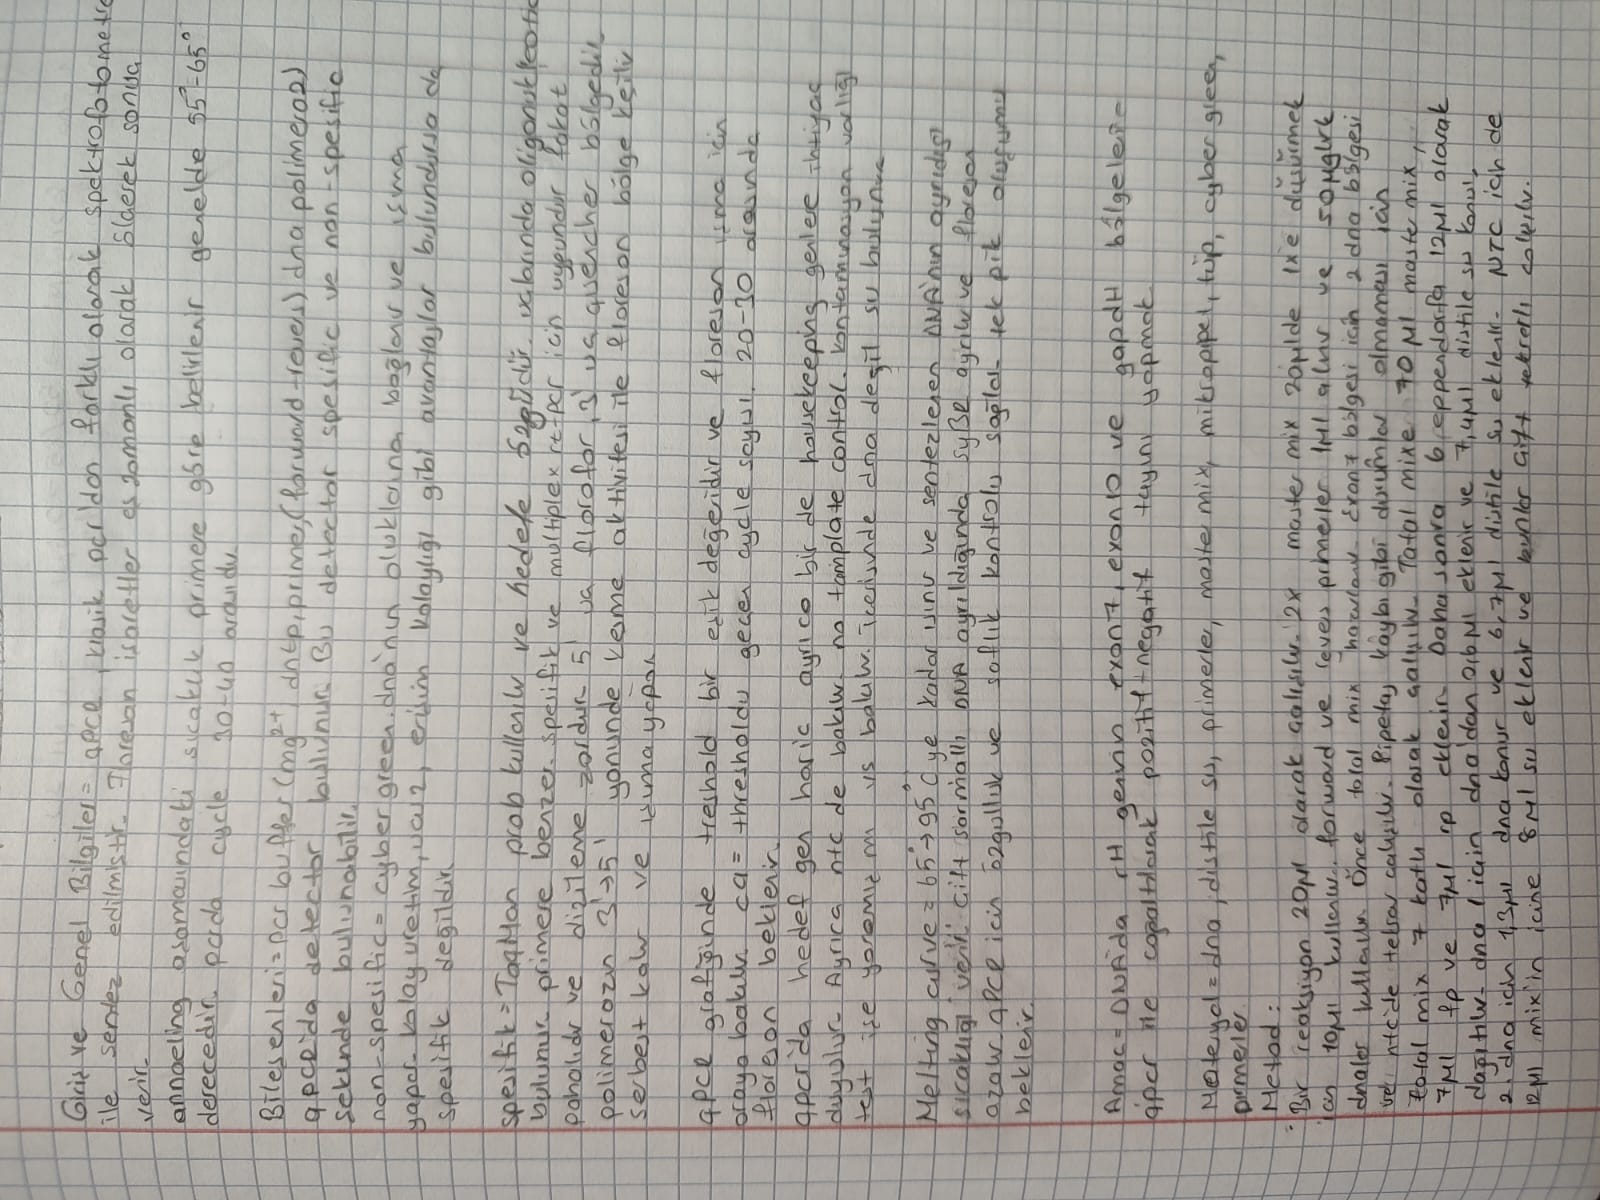 Giriş ve Genel Bilgiler= qpcr, klasik pcr'dan farklı olarak spektrofotometre
ile sentez edilmiştir. Floresan işaretler eş zamanlı olarak ölçerek sonuç
verir.
anneeling aşamasındaki sıcaklık primere göre belirlenir genelde 55°-65°
derecedir. pcrda cycle 30-40 arasıdır.
Bileşenleri= pcr buffer (mg2+, dntp, primer, (forward+revers) dna polimeraz)
qpcr'da detector bulunur. Bu detector spesific ve non-spesific
şekunde bulunabilir.
non-spesific= cyber green. dna'nın oluklarına bağlanır ve ışıma
yapar. kolay üretim, ucuz, erişim kolaylığı gibi avantajlar bulundursa da
spesifik değildir.
spesifik= TaqMan prob kullanılır ve hedefe özgüdür. uçlarında oligonukleotid
bulunur primere benzer. spesifik ve multiplex rt-pcr için uygundur fakat
pahalıdır ve dizileme zordur. 5' ya florofor, 3' ya quencher bölgedir
polimerazın 3'→5' yönünde kesme aktivitesi ile floresan bölge kesilir
serbest kalır ve ışıma yapar.
qpcr grafiğinde treshold bir eşik değeridir ve floresan ışıma için
oraya bakılır. cq= thresholdu geçen cycle sayısı. 20-30 arasında
floresan beklenir.
qpcr'da hedef gen hariç ayrıca bir de housekeeping genlere ihtiyaç
duyulur. Ayrıca ntc de bakılır. no template control. kontaminasyon varlığı
test ise yaramız m ıs bakılır. içerisinde dna değil su bulunur.
Melting curve= 65°→95°C ye kadar ısınır ve sentezlenen DNA'nın ayrıldığı
sıcaklığı verir. çift sarmallı DNA ayrıldığında SYBR ayrılır ve floresan
azalır. qPCR için özgüllük ve saflık kontrolü sağlar. tek pik oluşumu
beklenir.
Amaç= DNA'da rH genin exon7, exon10 ve gapdH bölgelerin
qpcr ile çoğaltılarak pozitif-negatif tayini yapmak
Materyal= dna, distile su, primerler, master mix, mikropipet, tüp, cyber green,
primerler.
Metod:
Bir reaksiyon 20µl olarak çalışılır. 2x master mix 20µlde 1xe düşürmek
için 10µl kullanılır. forward ve revers primerler 1µl alınır ve 50µglık
dnalar kullanılır. Önce total mix hazırlanır. Exon7 bölgesi için 2 dna bölgesi
ve ntcide tekrar çalışılır. Pipetaj kaybı gibi durumlar olmaması için
total mix 7 katlı olarak çalışılır. Total mixe 70µl master mix,
7µl fp ve 7µl rp eklenir. Daha sonra 6 eppendorfa 12µl olarak
dağıtılır. dna 1 için dna'dan 0,6µl eklenir ve 7,4µl distile su konur,
2. dna için 1,3µl dna konur ve 6,7µl distile su eklenir. NTC için de
12µl mix'in içine 8µl su eklenir ve bunlar çift tekrarlı çalışılır.